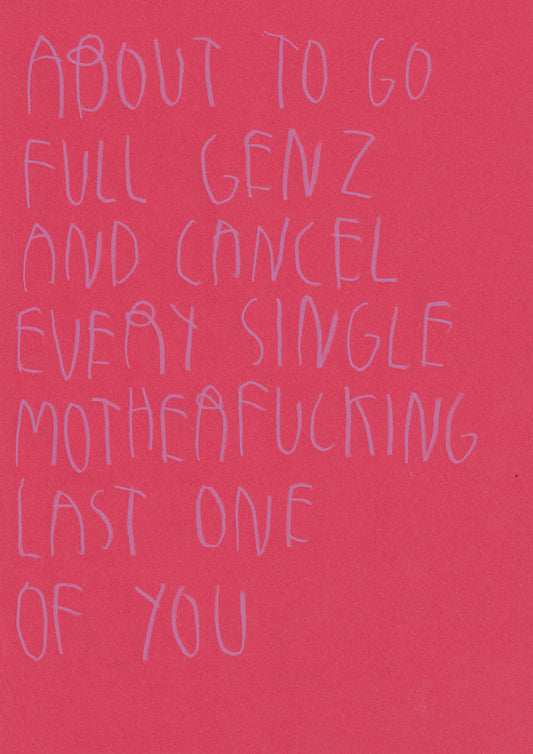 ABOUT TO GO
FULL GEN Z
AND CANCEL
EVERY SINGLE
MOTHERFUCKING
LAST ONE
OF YOU